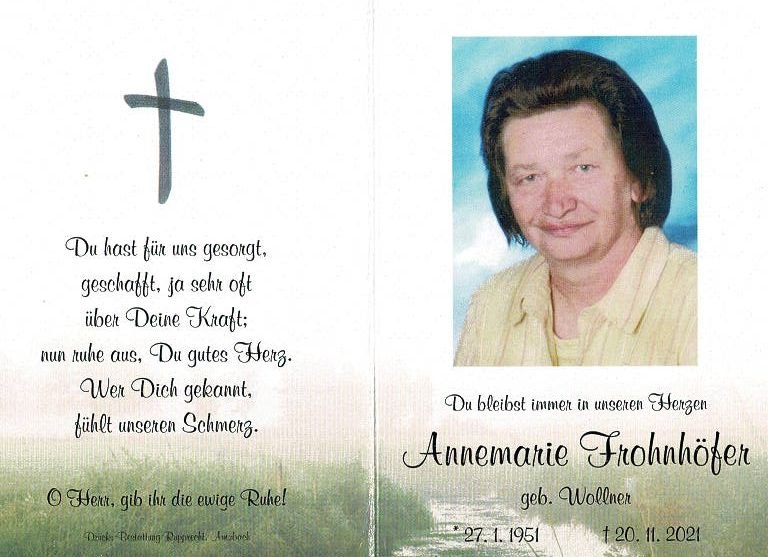 Du hast für uns gesorgt,
geschafft, ja sehr oft
über Deine Kraft;
nun ruhe aus, Du gutes Herz.
Wer Dich gekannt,
fühlt unseren Schmerz.
O Herr, gib ihr die ewige Ruhe!
Druck: Bestattung Rupprecht, Arnsbach
Du bleibst immer in unseren Herzen
Annemarie Frohnhöfer
geb. Wollner
* 27. 1. 1951 † 20. 11. 2021